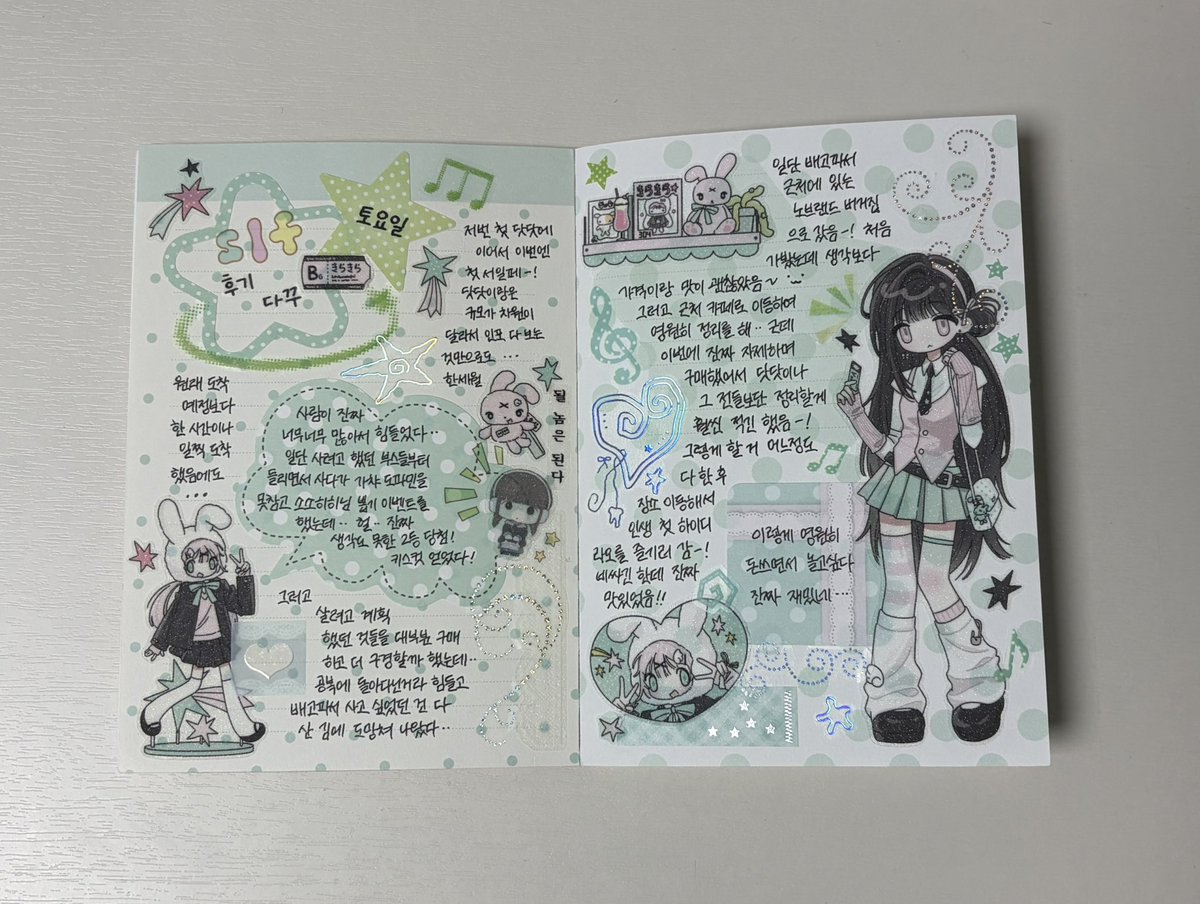 토요일
후기
다꾸
B6
きらきら
저번 첫 닷닷에
이어서 이번엔
첫 서일페~!
닷닷이랑은
규모가 차원이
달라서 인포 다 보는
것만으로도 ...
한세월
원래 도착
예정보다
한 시간이나
일찍 도착
했음에도
...
사람이 진짜
너무너무 많아서 힘들었다..
일단 사려고 했던 부스들부터
들리면서 사다가 가챠 도파민을
못참고 소소히히님 뽑기 이벤트를
했는데.. 헐.. 진짜
생각도 못한 2등 당첨!
키스컷 얻었다!
될 놈은 된다
그러고
살려고 계획
했던 것들을 대부분 구매
하고 더 구경할까 했는데..
공복에 돌아다닌거라 힘들고
배고파서 사고 싶었던 건 다
산 김에 도망쳐 나왔다..
일단 배고파서
근처에 있는
노브랜드 버거집
으로 갔음~! 처음
가봤는데 생각보다
가격이랑 맛이 괜찮았음~
그러고 근처 카페로 이동하여
영원히 정리를 해.. 근데
이번에 진짜 자제하며
구매했어서 닷닷이나
그 전들보단 정리할게
훨씬 적긴 했음~!
그렇게 할 거 어느정도
다 한 후
장소 이동해서
인생 첫 하이디
라오를 즐기러 감~!
비싸긴 한데 진짜
맛있었음!!
이렇게 영원히
돈쓰면서 놀고싶다
진짜 재밌네...